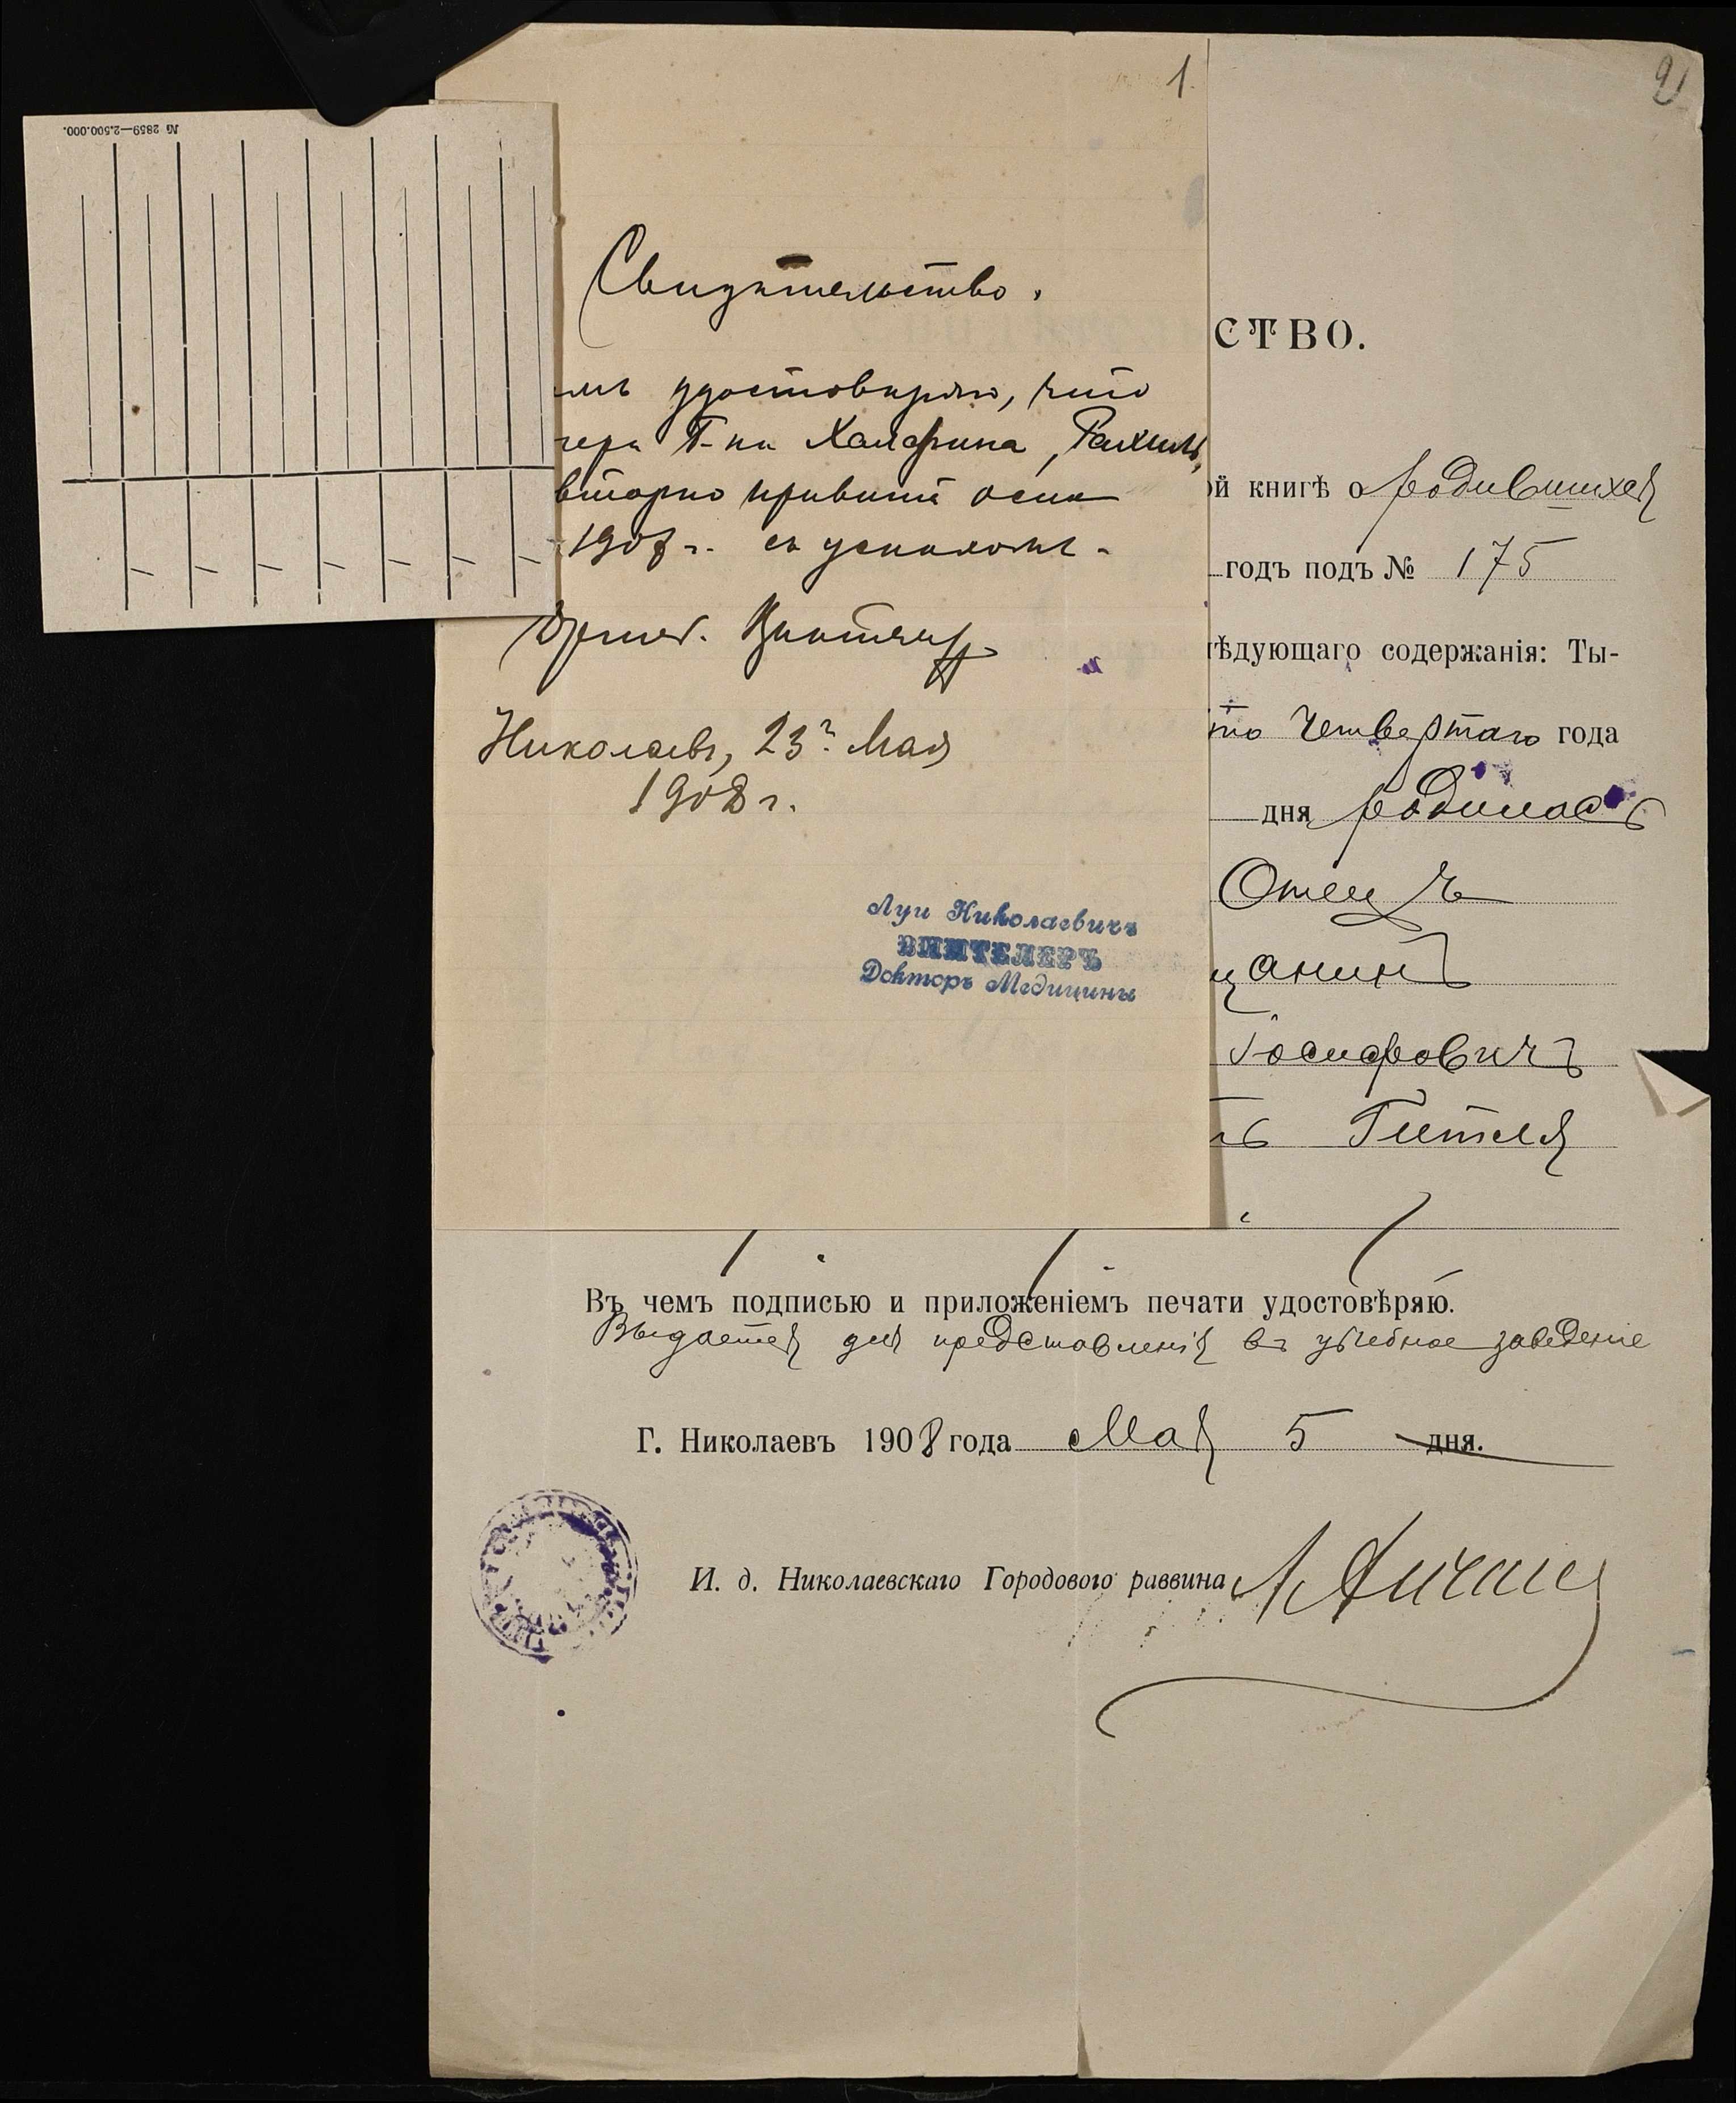 № 2859—2.500.000.
1
Свидѣтельство.
мъ удостовѣряю, что
чери Г-на Халфина, Рахили,
вторно привита оспа
1908 г. съ успѣхомъ.
Николаевъ, 23го Мая
1908 г.
Луи Николаевичъ
ВИНТЕЛЕРЪ
Докторъ Медицины
2
СТВО.
ой книгѣ о родившихся
годъ подъ № 175
лѣдующаго содержанія: Ты-
то четвертаго года
дня родилась
Отецъ
щанинъ
Іосифовичъ
ть Гителя
Въ чемъ подписью и приложеніемъ печати удостовѣряю.
Выдается для представленія въ учебное заведеніе
Г. Николаевъ 1908 года Мая 5 дня.
И. д. Николаевскаго Городового раввина